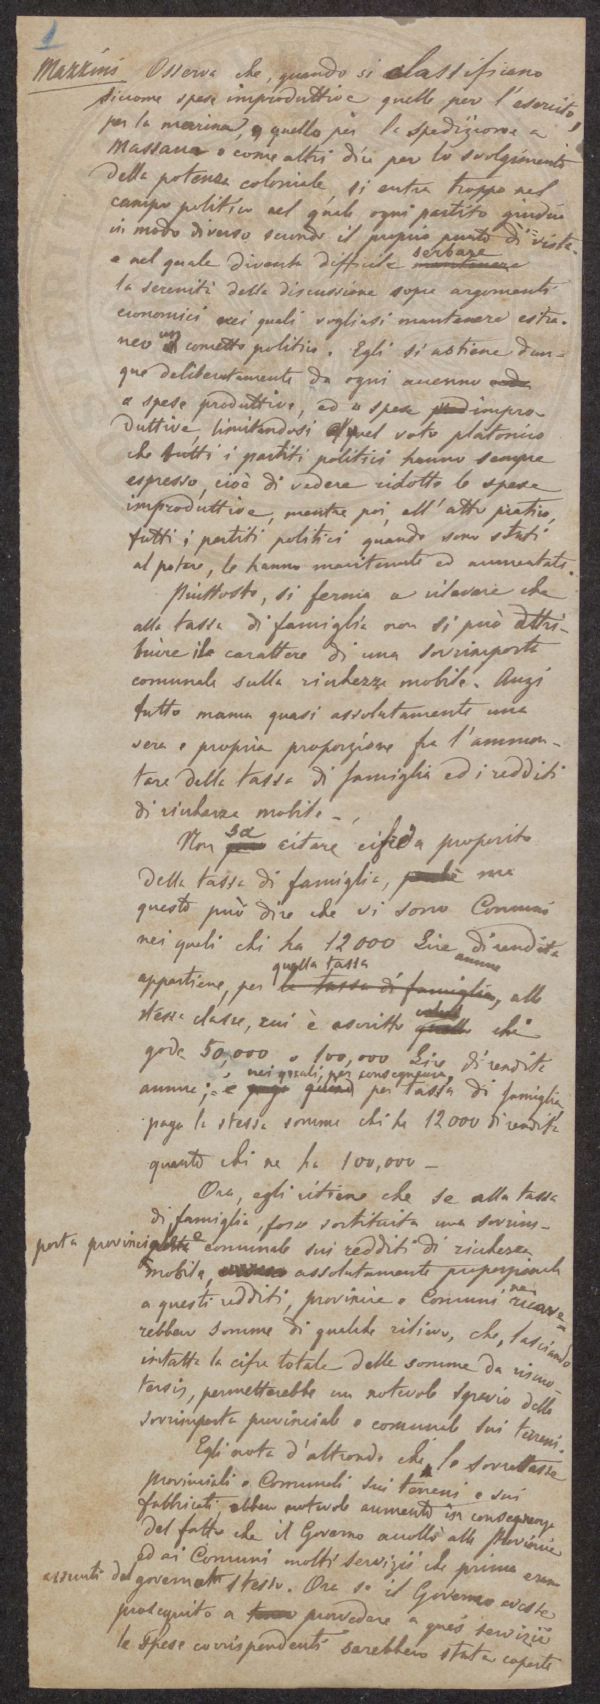 1
Mazzini Osserva che, quando si classificano
siccome spese improduttive quelle per l'esercito,
per la marina, o quelle per la spedizione a
Massaua o come altri dice per lo svolgimento
della potenza coloniale, si entra troppo nel
campo politico nel quale ogni partito giudica
in modo diverso secondo il proprio punto di vista
e nel quale diventa difficile mantenere serbare
la serenità della discussione sopra argomenti
economici nei quali vogliasi mantenere estra-
neo un concetto politico. Egli si astiene dun-
que deliberatamente da ogni accenno
a spese produttive, ed a spese impro-
duttive limitandosi a quel voto platonico
che tutti i partiti politici hanno sempre
espresso, cioè di vedere ridotte le spese
improduttive, mentre poi, all'atto pratico,
tutti i partiti politici quando sono stati
al potere, le hanno mantenute ed aumentate.
Piuttosto, si ferma a rilevare che
alla tassa di famiglia non si può attri-
buire il carattere di una sovrimposta
comunale sulla ricchezza mobile. Anzi
tutto manca quasi assolutamente una
vera e propria proporzione fra l'ammon-
tare della tassa di famiglia ed i redditi
di ricchezza mobile.
Non sa citare cifre a proposito
della tassa di famiglia, perchè ma
questo può dire che vi sono Comuni
nei quali chi ha 12000 Lire di rendita annue
appartiene, per la tassa di famiglia, quella tassa alla
stessa classe, cui è ascritto quello che
gode 50,000 o 100,000 Lire di rendita
annue; e nei quali, per conseguenza, per tassa di famiglia
paga la stessa somma chi ha 12000 di rendita
quanto chi ne ha 100,000 -
Ora, egli ritiene che se alla tassa
di famiglia, fosse sostituita una sovrim-
posta provinciale e comunale sui redditi di ricchezza
mobile, assolutamente proporzionale
a questi redditi, provincie e Comuni ne ricave-
rebbero somme di qualche rilievo, che, lasciando
intatta la cifra totale delle somme da riscuo-
tersi, permetterebbe un notevole sgravio della
sovrimposta provinciale e comunale sui terreni.
Egli nota d'altronde che le sovrattasse
Provinciali e Comunali sui terreni e sui
fabbricati ebbero notevole aumento in conseguenza
del fatto che il Governo accollò alle Provincie
ed ai Comuni molti servizii che prima eran
assunti dal governo stesso. Ora se il Governo avesse
proseguito a provvedere a questi servizii
le spese corrispondenti sarebbero state coperte